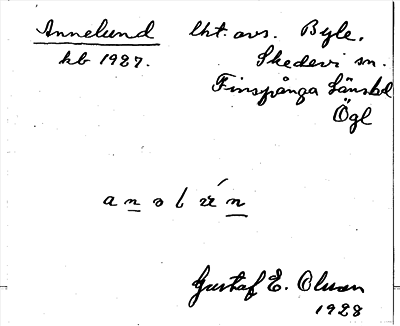 Annelund lht. avs. Byle,
hb 1927. Skedevi sn.
Finspånga Länshd
Ögl
Gustaf E. Olsson
1928